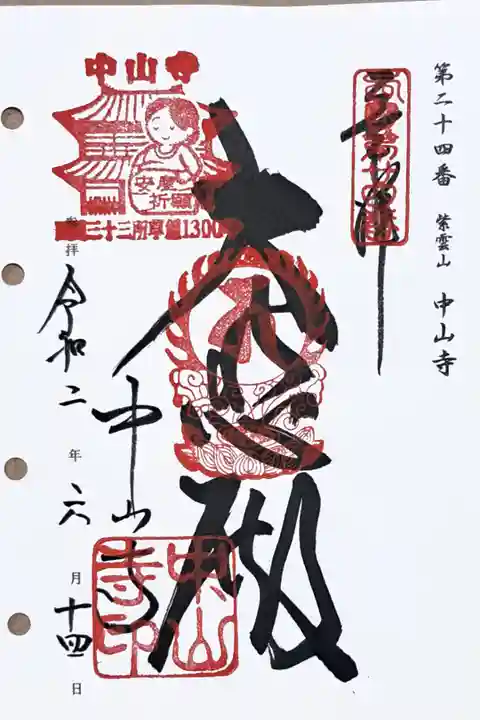 第二十四番 紫雲山 中山寺
奉拝
大悲殿
中山寺
令和二年六月十四日
中山寺
安産
祈願
三十三所草創1300
中山寺印